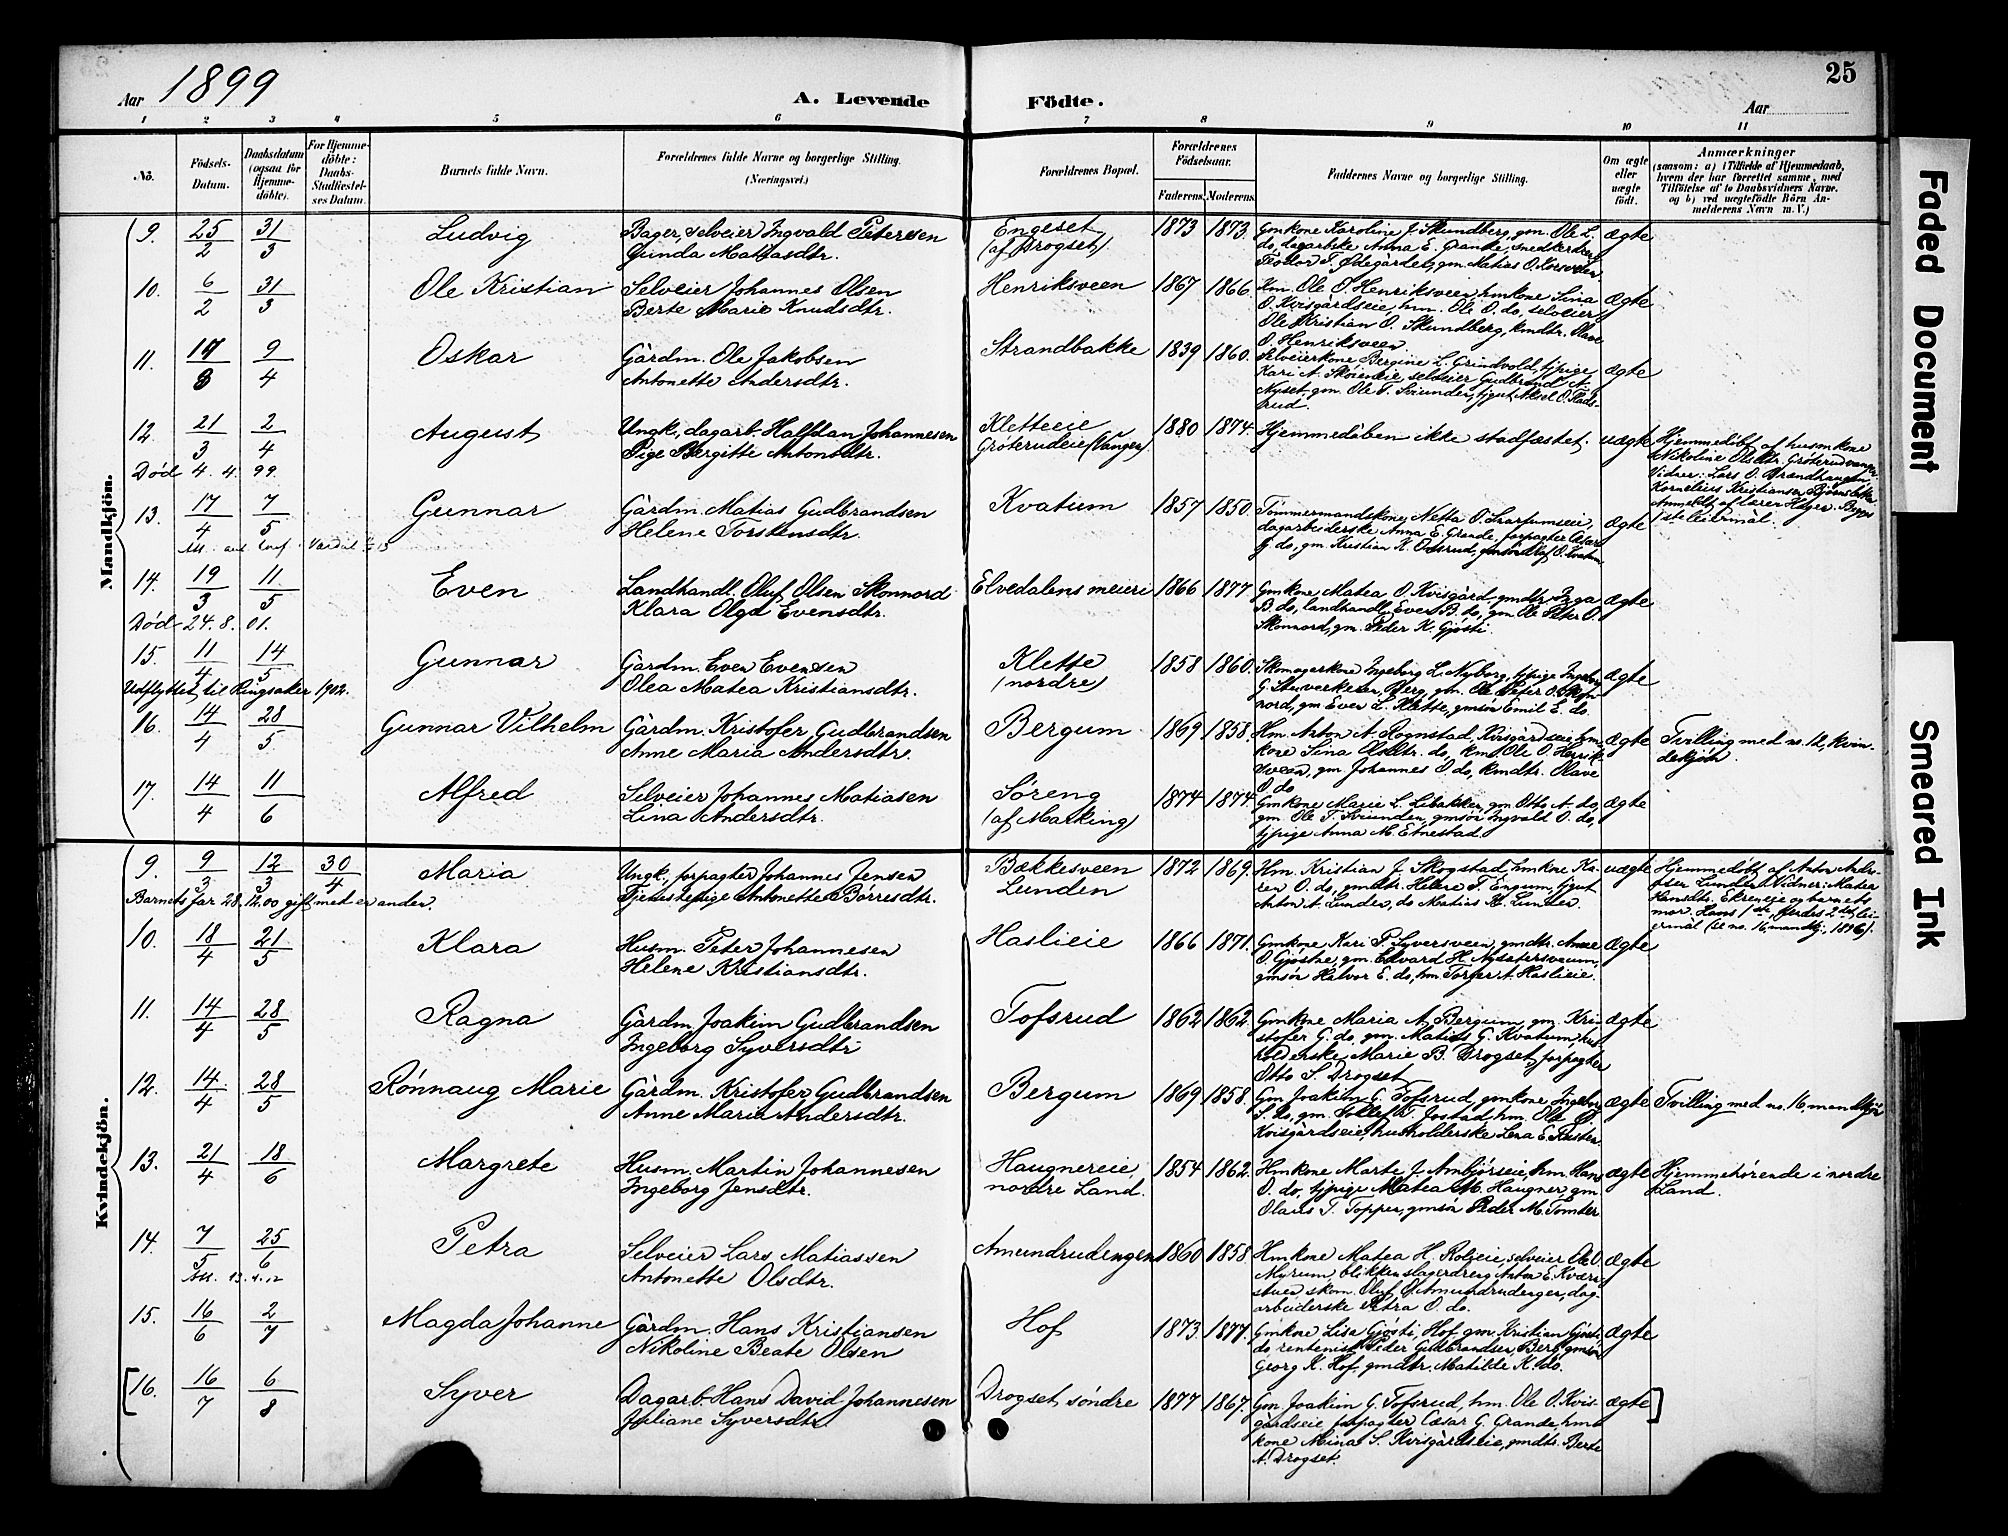 Aar 1899
A. Levende Födte.
25
Aar
1 2 3 4 5 6 7 8 9 10 11
No.
Födsels-Datum.
Daabsdatum (ogsaa for Hjemme-döbte).
For Hjemme-döbte: Daabs-Stadfæstel-ses Datum.
Barnets fulde Navn.
Forældrenes fulde Navne og borgerlige Stilling.
(Næringsvei.)
Forældrenes Bopæl.
Forældrenes Födselsaar.
Faderens. Moderens.
Faddernes Navne og borgerlige Stilling.
Om ægte eller uægte födt.
Anmærkninger
(saasom: a) i Tilfælde af Hjemmedaab, hvem der har forrettet samme, med Tilföielse af to Daabsvidners Navne, og b) ved uægtefödte Börn An-melderens Navn m. V.)
Mandkjön.
9. 25/2 31/3 Ludvig
Bager, selveier Ingvald Petersen
Gunda Matiasdtr.
Engeset
(af Drogset).
1873 1873.
Gmkone Karoline J. Skundberg, gm. Ole L.
do, dagarbske Anna E. Granke, snedkerdreng
Teodor T. Ødegårdet, gm. Matias O. Korsveen
ægte
10. 6/2 31/3 Ole Kristian
Selveier Johannes Olsen
Berte Marie Knudsdtr.
Henriksveen
1867 1866.
Hm. Ole O. Henriksveen, hmkone Lina
O. Kvisgårdseie, hm. Ole O. do, selveier
Ole Kristian O. Skundberg, kmdtr. Olave
O. Henriksveen.
ægte
11. 17/8 9/4 Oskar
Gårdm. Ole Jakobsen
Antonette Andersdtr.
Strandbakke
1839 1860.
Selveierkone Bergine L. Grindvold, tjpige
Kari A. Skoieneie, selveier Gudbrand A.
Nyset, gm. Ole T. Sviunder, tjgut Aksel O. Stads-
rud.
ægte
12. 21/3 2/4 August
Død 4. 4. 99.
Ungk., dagarb. Halfdan Johannesen
Pige Bergitte Antonsdtr.
Kletteeie
Gröterudeie (vangen)
1880 1874.
Hjemmedåben ikke stadfæstet.
uægte
Hjemmedöbt af husmkone
Nikoline Olsdtr. Gröterudvangen
Vidner: Lars O. Brændhaugen,
Kornelius Kristiansen Björnsbakke
Anmeldt af lærer Hager. Begges
1ste leiermål.
13. 17/4 7/5 Gunnar
Gårdm. Matias Gudbrandsen
Helene Torstensdtr.
Kvatum
1857 1850.
Tømmermandskone Netta O. Skarpumseie,
dagarbeiderske Anna E. Grande, forpagter Cæsar
G. do, gm. Kristian K. Ovsrud, gmsön Olaf O. Kvatum
ægte
14. 19/3 11/5 Even
Død 24. 8. 01.
Landhandl. Oluf Olsen Skonnord
Klara Olga Evensdtr.
Elvedalens meieri
1866 1877
Gmkone Matea O. Kvisgård, gmdtr. Inga
B. do, landhandl. Even B. do, gm. Ole Peter O.
Skonnord, gm. Peder K. Gjösti.
ægte
15. 11/4 14/5 Gunnar
Udflyttet til Ringsaker 1902.
Gårdm. Even Evensen
Olea Matea Kristiansdtr.
Klette
(nordre)
1858 1860.
Skomagerkone Ingeborg L. Nyborg, tjpige Ingeborg
G. Stuverkesen, Berg, gm. Ole Peter O. Skon-
nord, gm. Even L. Klette, gmsön Emil E. do.
ægte
16. 14/4 28/5 Gunnar Vilhelm
Gårdm. Kristofer Gudbrandsen
Anne Maria Andersdtr.
Bergum
1869 1858.
Hm. Anton A. Rognstad, Kvisgårdseie, hm-
kone Lina Olsdtr. do, km. Ole O. Henrik-
sveen, gm. Johannes O. do, kmdtr. Olave
O. do
ægte
Tvilling med no. 12, kvin-
dekjön.
17. 14/4 11/6 Alfred
Selveier Johannes Matiasen
Lina Andersdtr.
Söreng
(af Marking)
1874 1874.
Gmkone Marie L. Libakken, gm Otto A. do,
gm. Ole T. Sviunden, gmsön Ingvald O. do,
tjpige Anna M. Etnestad.
ægte
Kvindekjön.
9. 9/3 12/3 30/4 Maria
Barnets far 28. 12. 00 gift met en anden.
Ungk., forpagter Johannes Jensen
Tjenestepige Antonette Börresdtr.
Bækkesveen
Lunden
1872 1869.
Hm. Kristian J. Skogstad, hmkone Ka-
ren O. do, gmdtr. Helene T. Engum, tjgut
Anton A. Lunden, do Matias H. Lunden.
uægte
Hjemmedöbt af Anton Andre-
asen Lunden. Vidner: Matea
Hansdtr. Ekreneie og barnets
mor. Hans 1ste, hendes 2det lei-
ermål (se no. 16, mandkj., 1896).
10. 18/4 21/5 Klara
Husm. Peter Johannesen
Helene Kristiansdtr.
Haslieie
1866 1871.
Gmkone Kari P. Syversveen, gmdtr. Anne
O. Gjöstne, gm. Edvard H. Nysætersveen,
gmsön Halvor E. do, hm. Torger A. Haslieie.
ægte
11. 14/4 28/5 Ragna
Gårdm. Joakim Gudbrandsen
Ingeborg Syversdtr.
Tofsrud
1862 1862.
Gmkone Maria A. Bergum, gm. Kri-
stofer G. do, gm. Matias G. Kvatum, hus-
holderske Marie B. Drogset, forpagter
Otto S. Drogset.
ægte
12. 14/4 28/5 Rönnaug Marie
Gårdm. Kristofer Gudbrandsen
Anne Maria Andersdtr.
Bergum
1869 1858.
Gm Joakim G. Tofsrud, gmkone Ingeborg
S. do, gm. Tollef T. Jostad, hm. Ole O.
Kvisgårdseie, husholderske Lena E. Risten.
ægte
Tvilling med no. 16, mandkjön
13. 21/4 18/6 Margrete
Husm. Martin Johannesen
Ingeborg Jensdtr.
Haugnereie,
nordre Land.
1854 1862.
Hmkone Marte J. Ambjörseie, hm. Hans
O. do, tjpige Matea M. Haugner, gm.
Olaus T. Topper, gmsön Peder M. Tomter
ægte
Hjemmehörende i nordre
Land.
14. 7/5 25/6 Petra
Att. 13. 4. 12
Selveier Lars Matiassen
Antonette Olsdtr.
Amundrudengen
1860 1858.
Hmkone Matea H. Rolieie, selveier Ole O.
Myrum, blikkenslagerdreng Anton E. Kværn-
stuen, skom. Oluf O. Amundrudengen, dag-
arbeiderske Petra O. do.
ægte
15. 16/6 2/7 Magda Johanne
Gårdm. Hans Kristiansen
Nikoline Beate Olsen
Hof
1873. 1877.
Gmkone Lisa Gjösti, Hof, gm. Kristian Gjösti
do, rentenist Peder Gudbrandsen, Berg, gmsön
Georg K. Hof, gmdtr. Matilde K. do.
ægte
[16. 16/7 6/8 Syver
Dagarb. Hans David Johannesen
Juliane Syversdtr.
Drogset söndre
1877 1867.
Gm. Joakim G. Tofsrud, hm. Ole O. Kvis-
gårdseie, forpagter Cæsar G. Grande, hm-
kone Mina S. Kvisgårdseie, gmdtr. Berte
A. Drogset.
ægte]
Faded Document
Smeared Ink